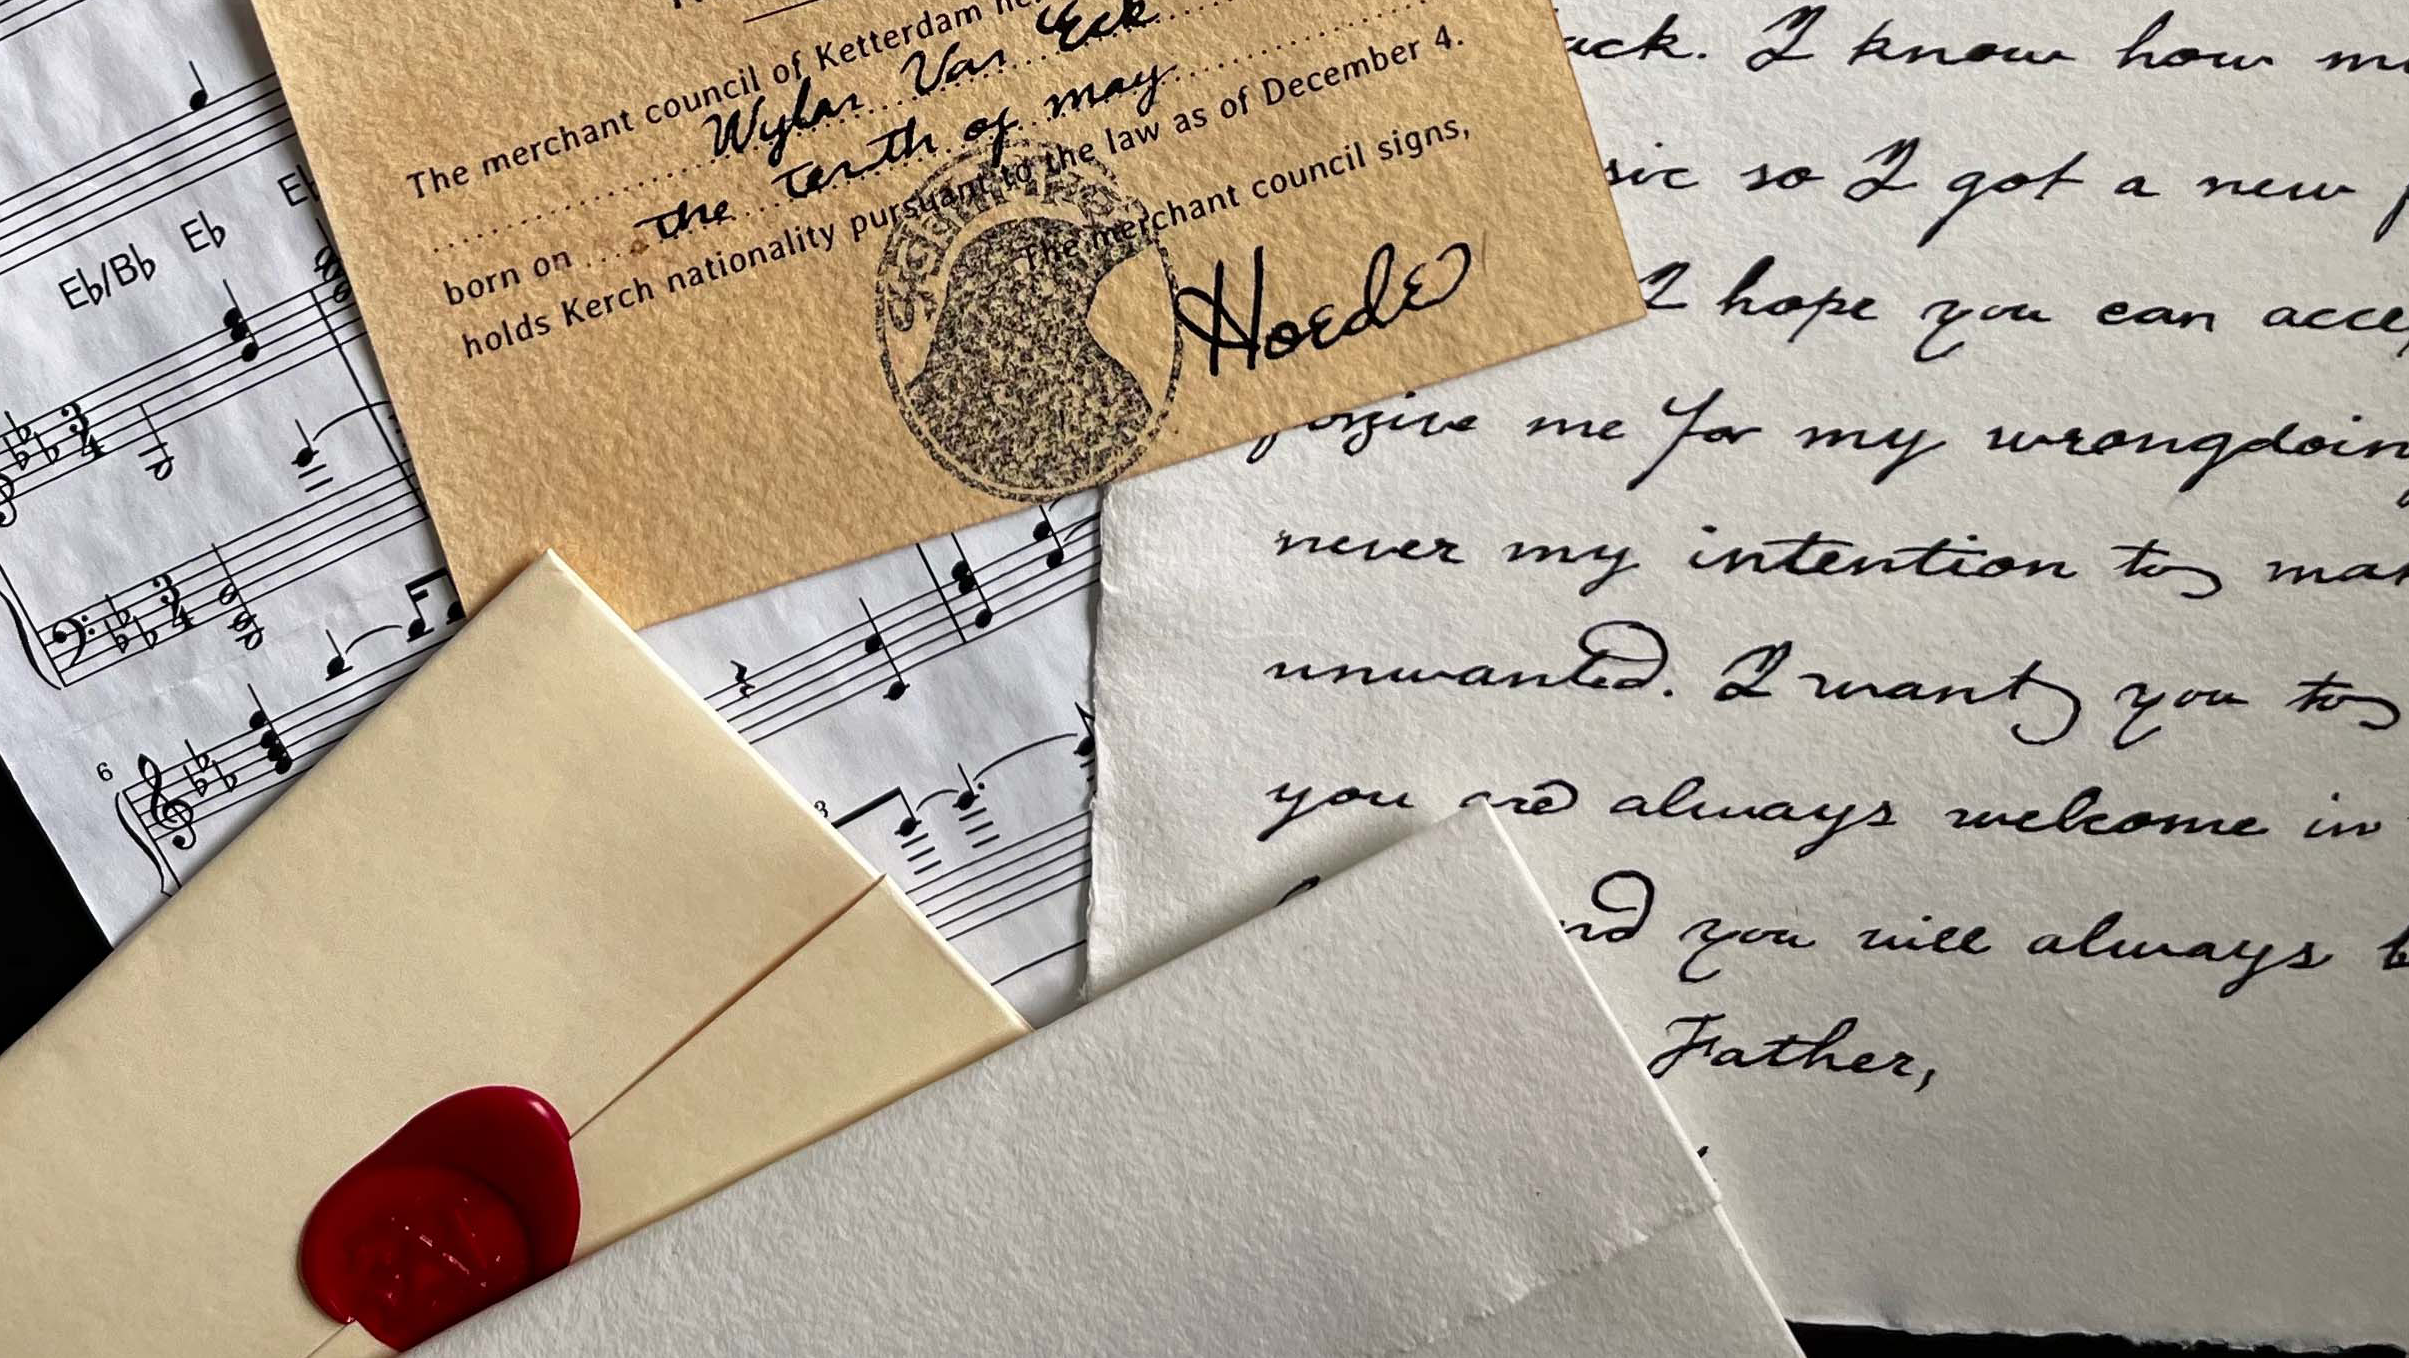 The merchant council of Ketterdam
Wylan Van Eck
born on the tenth of may
holds Kerch nationality pursuant to the law as of December 4.
The merchant council signs,
Hoede
Eb/Bb Eb
6
3
I know how
so I got a new
I hope you can
forgive me for my
never my intention to
unwanted. I want you to
you are always welcome in
you will always
Father,